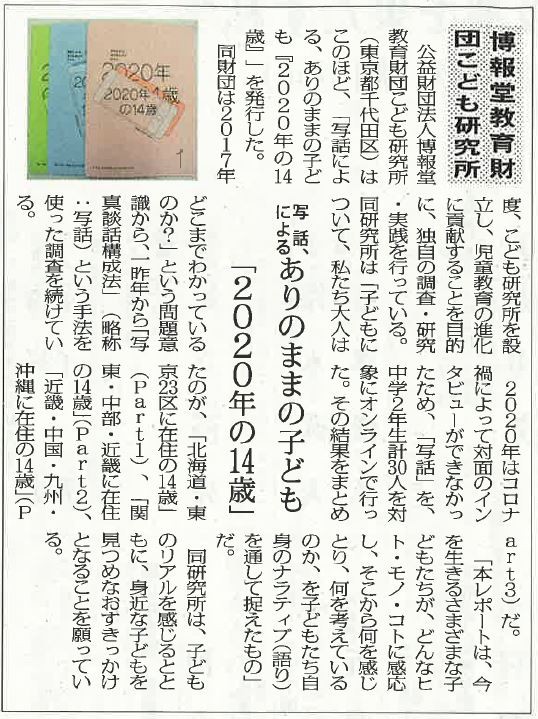 博報堂教育財
団こども研究所
公益財団法人博報堂
教育財団こども研究所
（東京都千代田区）は
このほど、「写話によ
る、ありのままの子ど
も『2020年の14
歳』」を発行した。
同財団は2017年
2020年
の14歳
度、こども研究所を設
立し、児童教育の進化
に貢献することを目的
に、独自の調査・研究
・実践を行っている。
同研究所は「子どもに
ついて、私たち大人は
写話による、ありのままの子ども
「2020年の14歳」
どこまでわかっている
のか？」という問題意
識から、一昨年から「写
真談話構成法」（略称
：写話）という手法を
使った調査を続けてい
る。
2020年はコロナ
禍によって対面のイン
タビューができなかっ
たため、「写話」を、
中学2年生計30人を対
象にオンラインで行っ
た。その結果をまとめ
たのが、「北海道・東
京23区に在住の14歳」
（Part1）、「関
東・中部・近畿に在住
の14歳」（Part2）、
「近畿・中国・九州・
沖縄に在住の14歳」（P
art3）だ。
「本レポートは、今
を生きるさまざまな子
どもたちが、どんなヒ
ト・モノ・コトに感応
し、そこから何を感じ
とり、何を考えている
のか、を子どもたち自
身のナラティブ（語り）
を通して捉えたもの」
だ。
同研究所は、子ども
のリアルを感じるとと
もに、身近な子どもを
見つめなおすきっかけ
となることを願ってい
る。